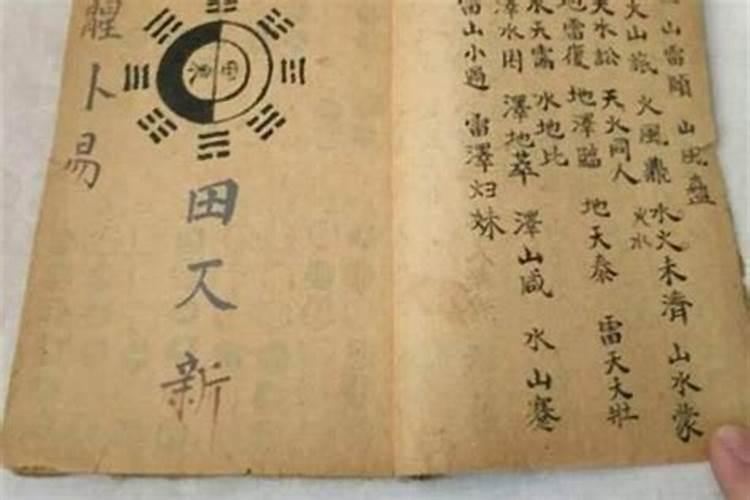 山雷頤
山風蠱
火山旅
火風鼎
水火未濟
火水
山水蒙
天水訟
天火同人
地雷復
地澤臨
地天泰
雷天大壯
水天需
水地比
澤水困
澤地萃
澤山咸
水山蹇
雷山小過
雷澤归妹
田人新
卜易